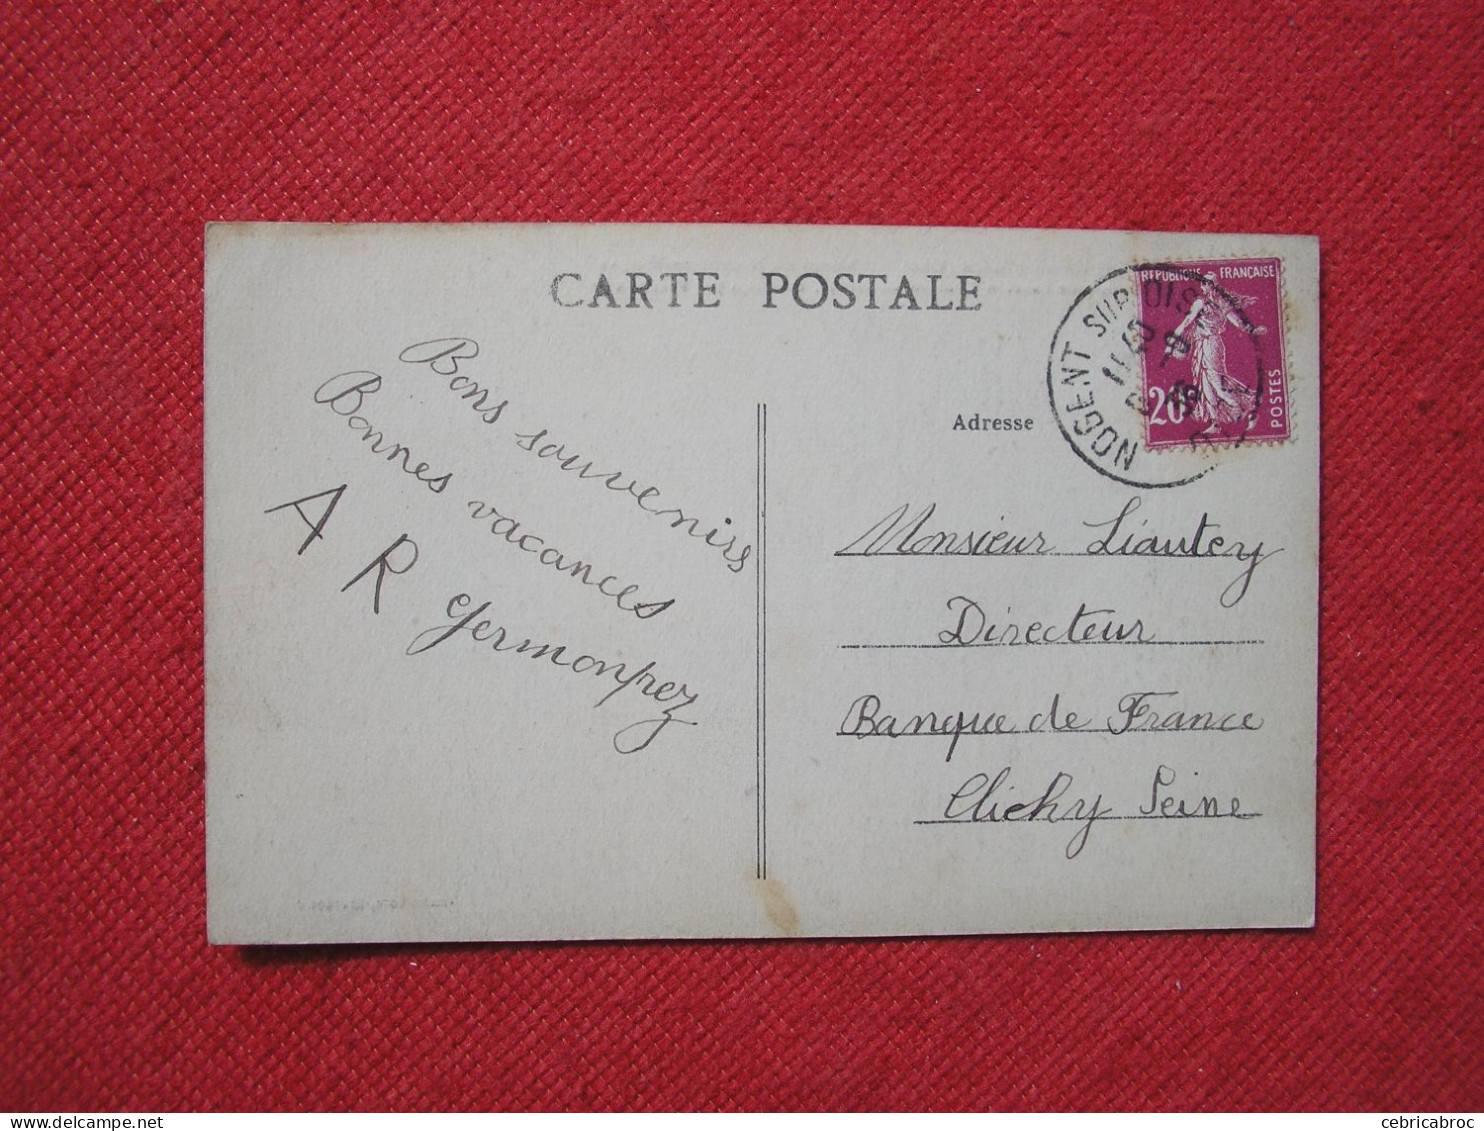 CARTE POSTALE
Bons souvenirs
Bonnes vacances
A R Germonprez
Adresse
REPUBLIQUE FRANÇAISE
20
POSTES
NOGENT SUR OISE
Monsieur Liautey
Directeur
Banque de France
Clichy Seine
cebricabroc